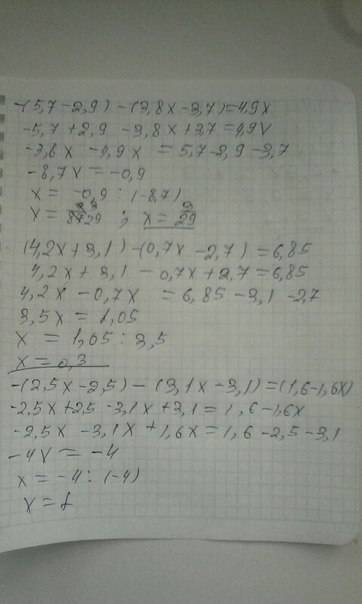 -(5,7-2,9)-(3,8x-3,7)=4,9x
-5,7+2,9-3,8x+3,7=4,9x
-3,8x-4,9x=5,7-2,9-3,7
-8,7x=-0,9
x=-0,9:(-8,7)
x= ; x=3/29
(4,2x+3,1)-(0,7x-2,7)=6,85
4,2x+3,1-0,7x+2,7=6,85
4,2x-0,7x=6,85-3,1-2,7
3,5x=1,05
x=1,05:3,5
x=0,3
-(2,5x-2,5)-(3,1x-3,1)=(1,6-1,6x)
-2,5x+2,5-3,1x+3,1=1,6-1,6x
-2,5x-3,1x+1,6x=1,6-2,5-3,1
-4x=-4
x=-4:(-4)
x=1